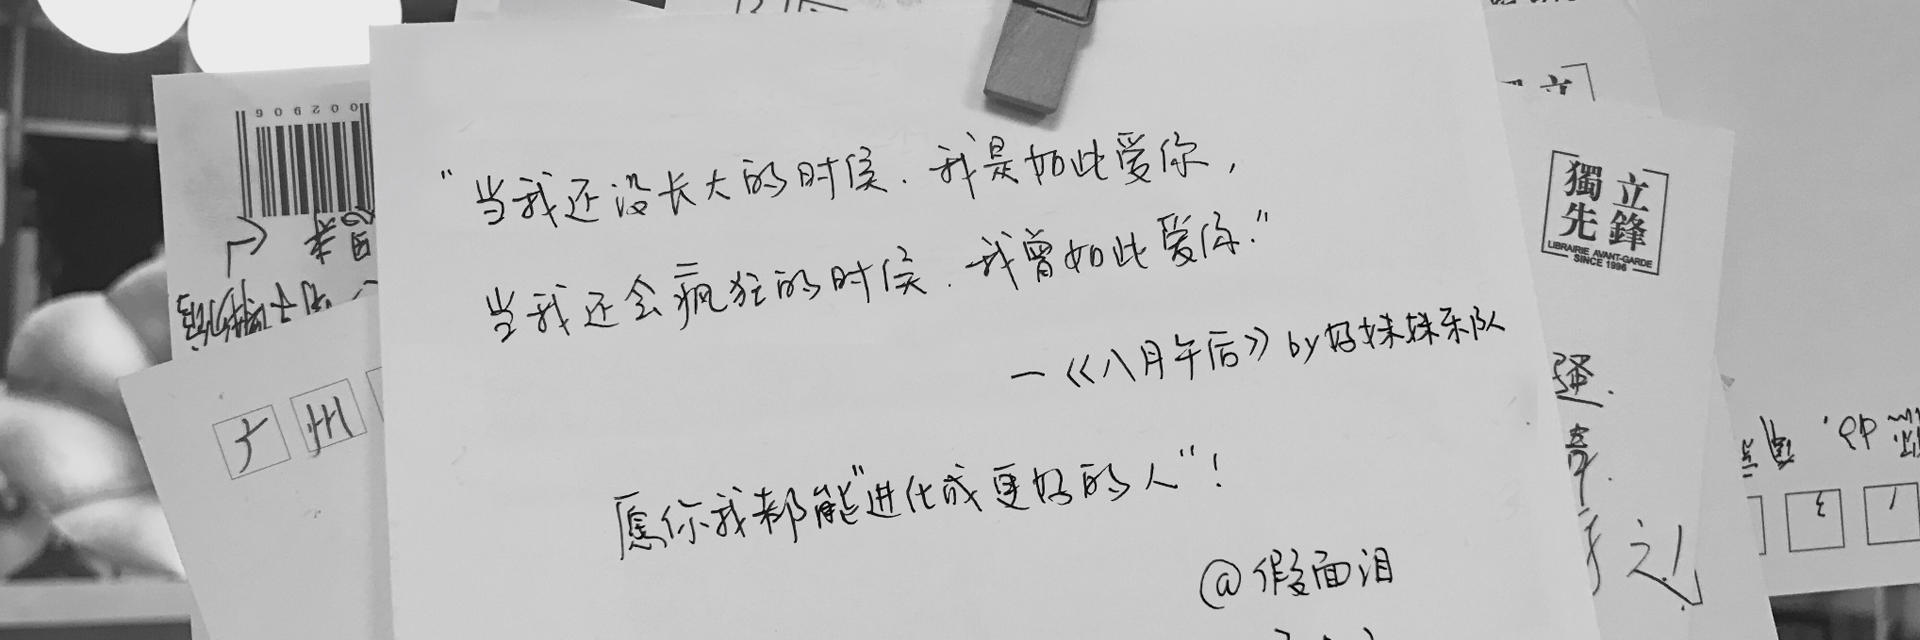 "当我还没长大的时候.我是如此爱你,
当我还会疯狂的时候.我曾如此爱你."
—《八月午后》by好妹妹乐队
愿你我都能"进化成更好的人"!
@假面泪
002906
广州
獨立
先鋒
LIBRAIRIE AVANT-GARDE
SINCE 1996